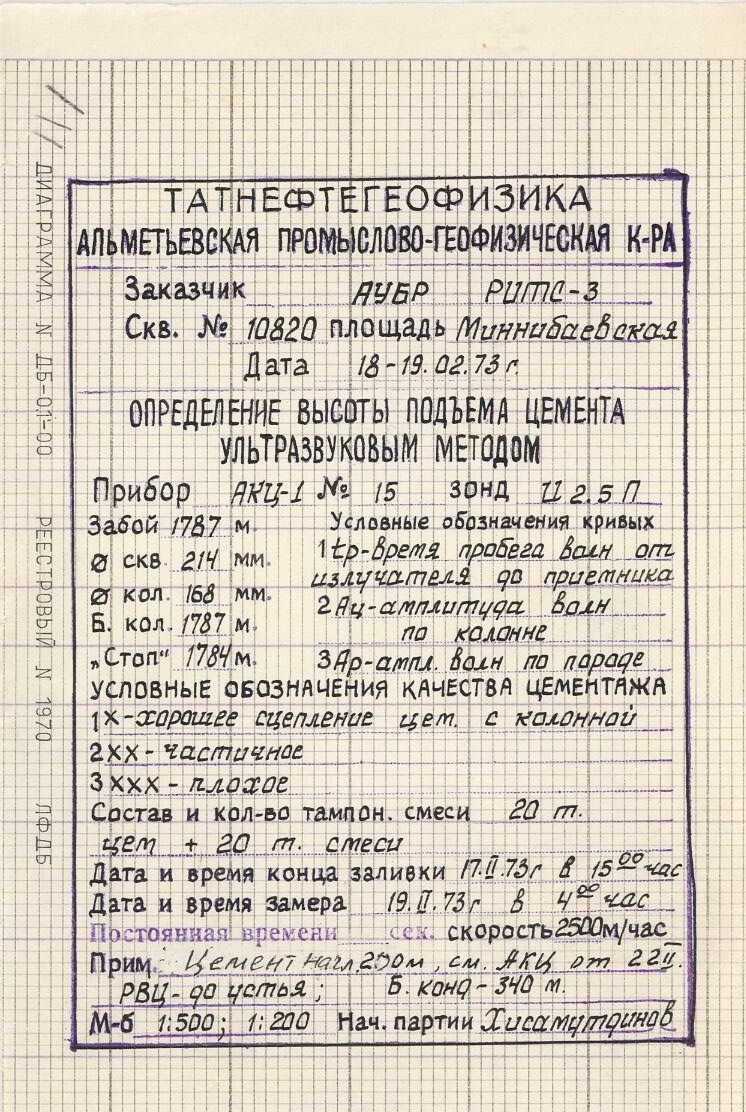 ТАТНЕФТЕГЕОФИЗИКА
АЛЬМЕТЬЕВСКАЯ ПРОМЫСЛОВО-ГЕОФИЗИЧЕСКАЯ К-РА
Заказчик АУБР РИТС-3
Скв. № 10820 площадь Миннибаевская
Дата 18-19.02.73 г.
ОПРЕДЕЛЕНИЕ ВЫСОТЫ ПОДЪЕМА ЦЕМЕНТА
УЛЬТРАЗВУКОВЫМ МЕТОДОМ
Прибор АКЦ-1 № 15 зонд И 2.5 П
Забой 1787 м.
ø скв. 214 мм.
ø кол. 168 мм.
Б. кол. 1787 м.
„Стоп" 1784 м.
Условные обозначения кривых
1 tр-время пробега волн от
излучателя до приемника
2 Ац-амплитуда волн
по колонне
3 Ар-ампл. волн по породе
УСЛОВНЫЕ ОБОЗНАЧЕНИЯ КАЧЕСТВА ЦЕМЕНТАЖА
1 х-хорошее сцепление цем. с колонной
2 хх-частичное
3 ххх-плохое
Состав и кол-во тампон. смеси 20 т.
цем + 20 т. смеси
Дата и время конца заливки 17.II.73г в 15⁰⁰ час
Дата и время замера 19.II.73г в 4⁰⁰ час
Постоянная времени сек. скорость 2500 м/час
Прим. Цемент нагл. 250м, см. АКЦ от 22 II.
РВЦ-до устья; Б. конд-340 м.
М-б 1:500; 1:200 Нач. партии Хисамутдинов
ДИАГРАММА N ДБ-0.1-00 РЕЕСТРОВЫЙ N 1970 ЛФДБ